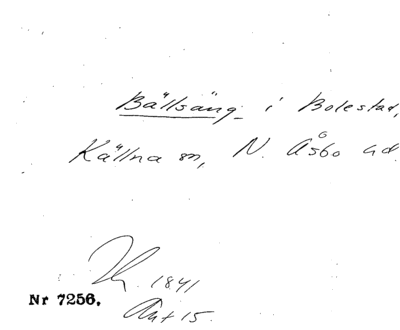 Bällsäng i Bolestad,
Källna sn, N. Åsbo hd.
1841
Nr 7256.
Akt 15.